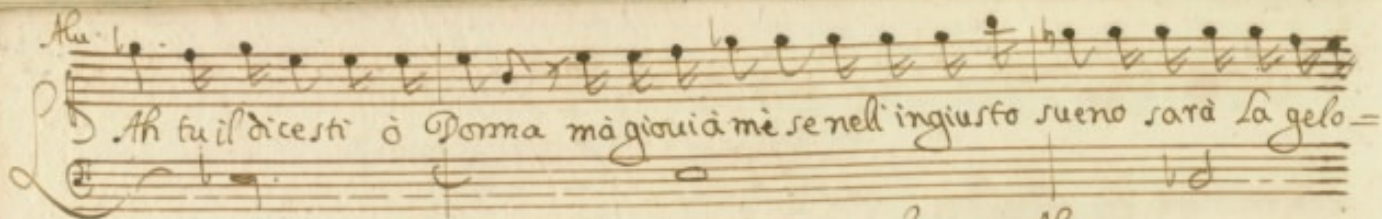 Alu.
Ah tu il dicesti ò Donna mà gioui à mè se nell ingiusto sueno sarà La gelo=